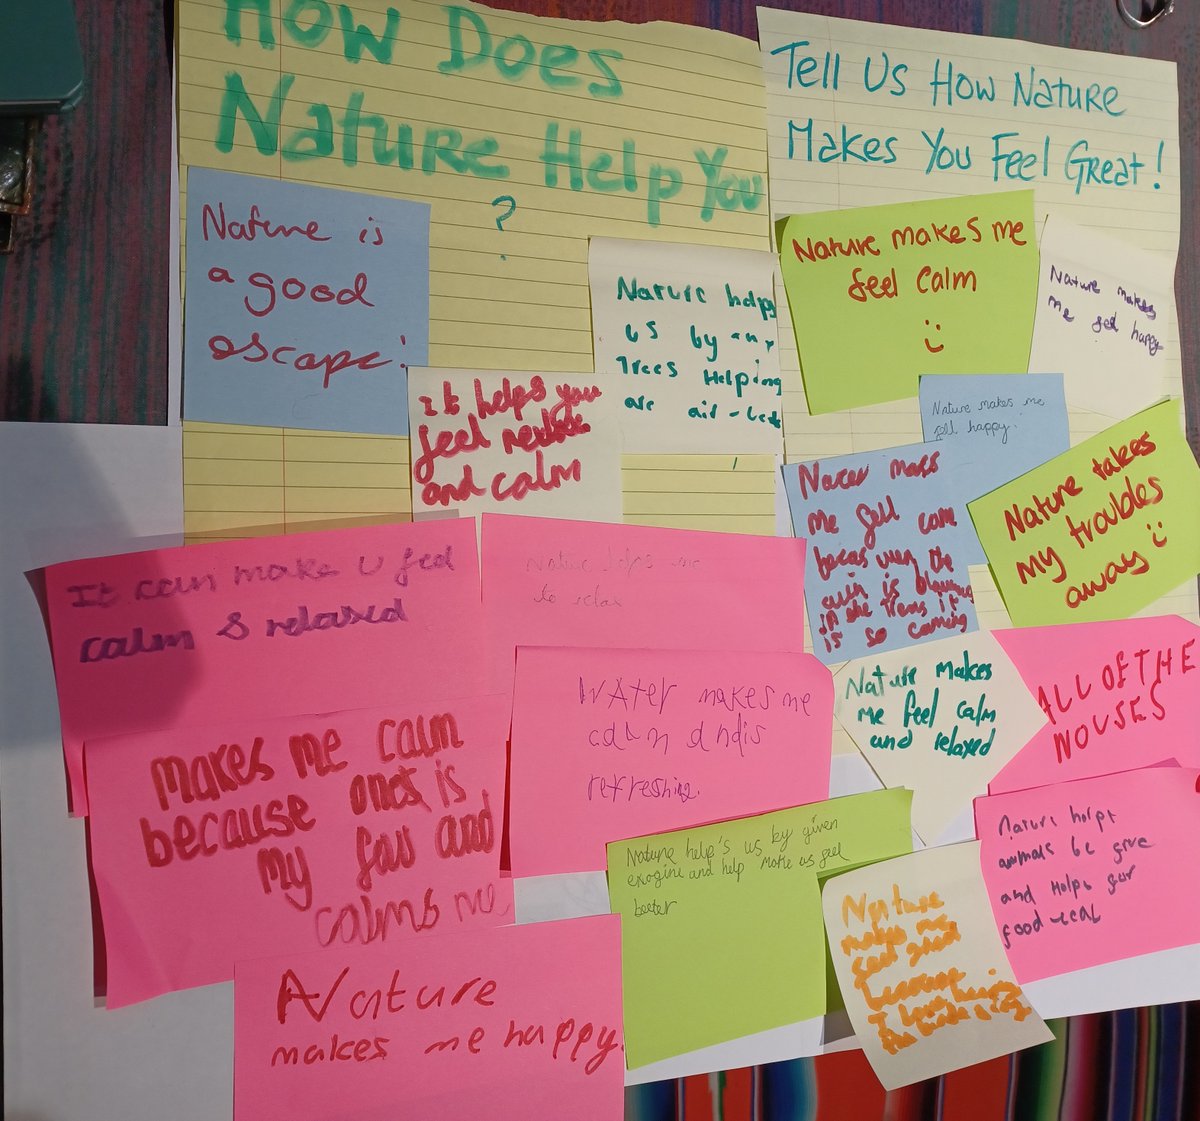 How Does
Nature Help You
?
Tell Us How Nature
Makes You Feel Great!
Nature is
a good
escape!
Nature helps
us by our
Trees Helping
are air-
It helps you
feel
and calm
Nature makes me
feel calm
Nature makes
me feel happy
Nature makes me
fell happy.
me fell
becas wen the
is blowing
in the it
is so
Nature takes
my troubles
away
It can make u feel
calm & relaxed
Nature helps me
to relax
makes me calm
because ones is
my fav and
calms me
WAter makes me
and is
refreshing.
Nature makes
me feel calm
and relaxed
ALL OF THE
NOUSES
Nature help's us by given
exogine and help make us feel
beeter
Nature
animals be
and Helps
food
Nature
makes me
feel good
I
Nature
makes me happy.